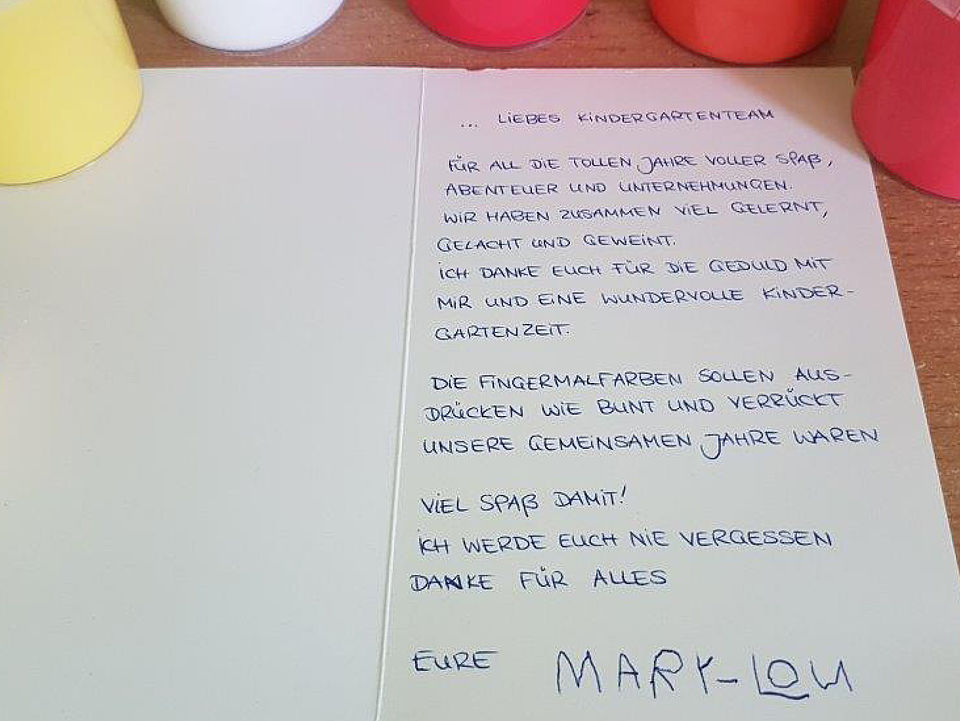 ... LIEBES KINDERGARTENTEAM
FÜR ALL DIE TOLLEN JAHRE VOLLER SPAß,
ABENTEUER UND UNTERNEHMUNGEN.
WIR HABEN ZUSAMMEN VIEL GELERNT,
GELACHT UND GEWEINT.
ICH DANKE EUCH FÜR DIE GEDULD MIT
MIR UND EINE WUNDERVOLLE KINDER-
GARTENZEIT.
DIE FINGERMALFARBEN SOLLEN AUS-
DRÜCKEN WIE BUNT UND VERRÜCKT
UNSERE GEMEINSAMEN JAHRE WAREN
VIEL SPAß DAMIT!
ICH WERDE EUCH NIE VERGESSEN
DANKE FÜR ALLES
EURE MARY-LOU